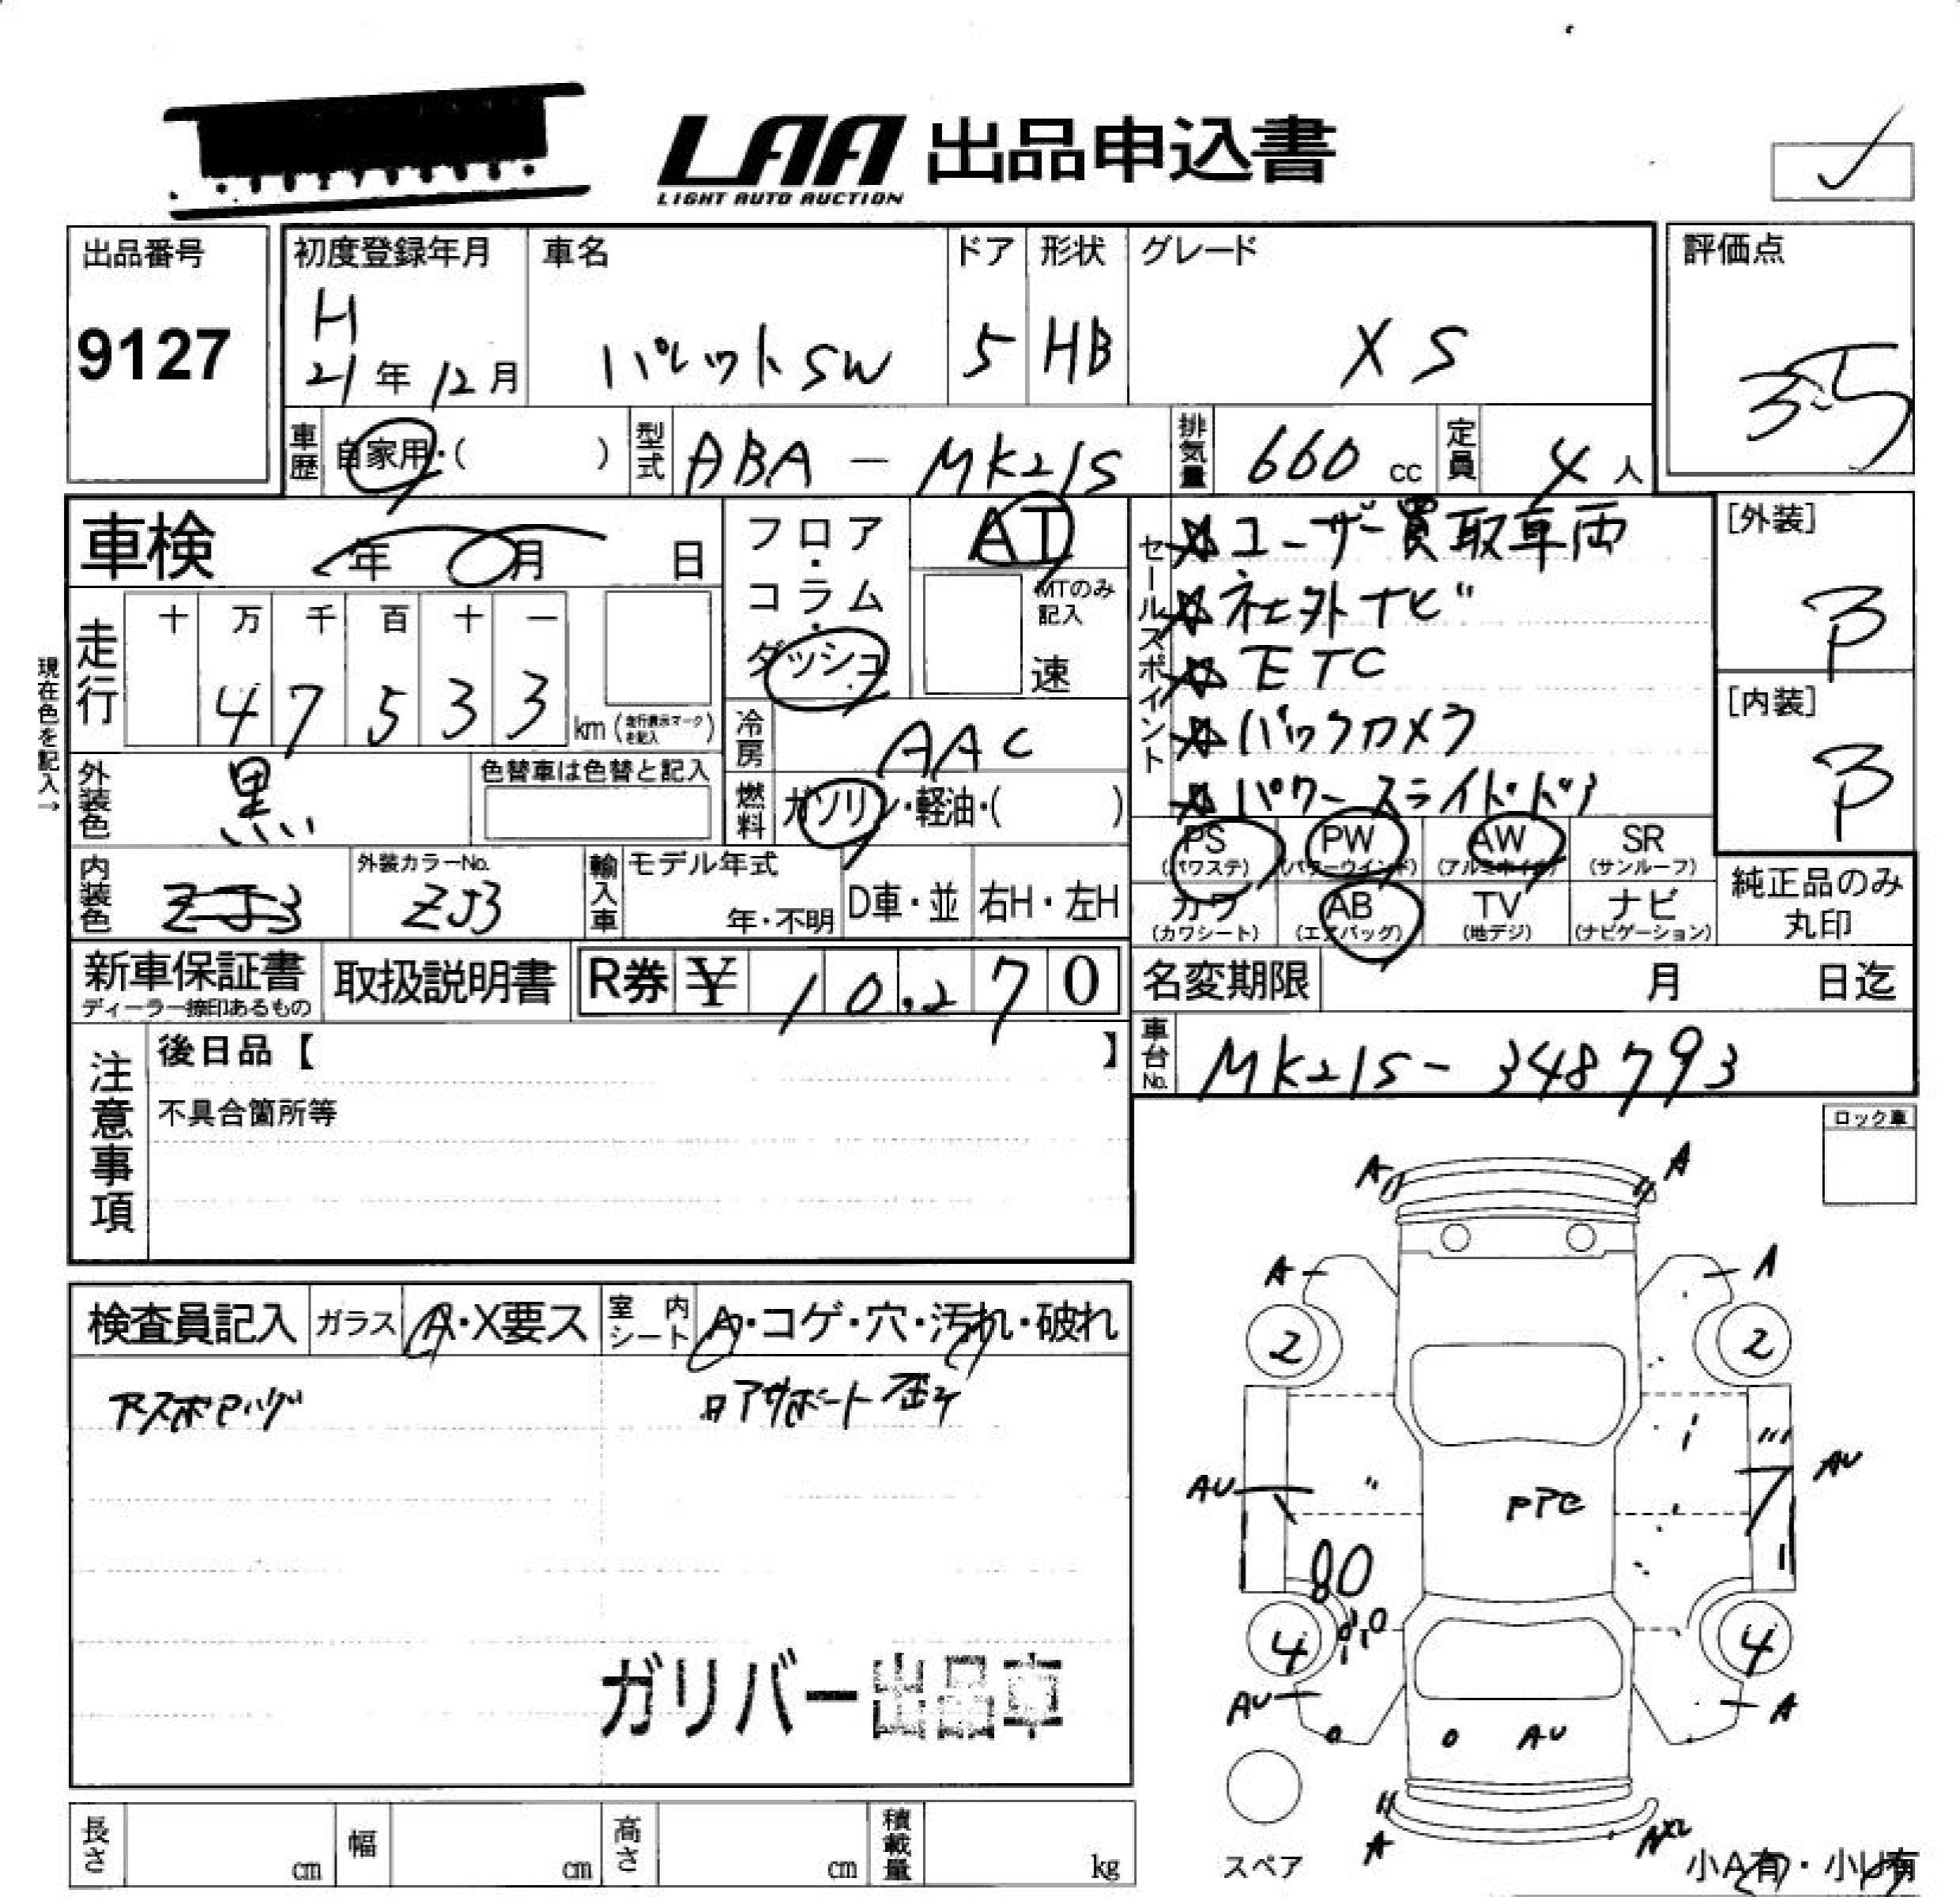 LAA 出品申込書
LIGHT AUTO AUCTION
出品番号
9127
初度登録年月
H
21年 12月
車名
パレットSW
ドア
5
形状
HB
グレード
XS
評価点
3.5
車歴
自家用・( )
型式
ABA-MK21S
排気量
660 cc
定員
4人
車検 年 月 日
走行
十 万 千 百 十 一
4 7 5 3 3
km (走行表示マークを記入)
現在色を記入→
外装色
黒
色替車は色替と記入
内装色
ZJ3
外装カラーNo.
ZJ3
フロア・コラム・ダッシュ
AT
MTのみ記入
速
冷房
AAC
燃料
ガソリン・軽油・( )
輸入車
モデル年式
年・不明
D車・並
右H・左H
セールスポイント
☆ユーザー買取車両
☆社外ナビ
☆ETC
☆バックカメラ
☆パワースライドドア
[外装]
B
[内装]
B
PS (パワステ)
PW (パワーウインド)
AW (アルミホイール)
SR (サンルーフ)
カワ (カワシート)
AB (エアバッグ)
TV (地デジ)
ナビ (ナビゲーション)
純正品のみ丸印
新車保証書
ディーラー捺印あるもの
取扱説明書
R券 ¥ 10,270
名変期限 月 日迄
車台No.
MK21S-348793
注意事項
後日品【 】
不具合箇所等
ロック車
検査員記入
ガラス
A・X要ス
室内シート
A・コゲ・穴・汚れ・破れ
ガリバー出品車
A A
A A
2 2
AU AU
PPC
80
4 4
AU A
AU
A
スペア
小A有・小U有
長さ cm
幅 cm
高さ cm
積載量 kg